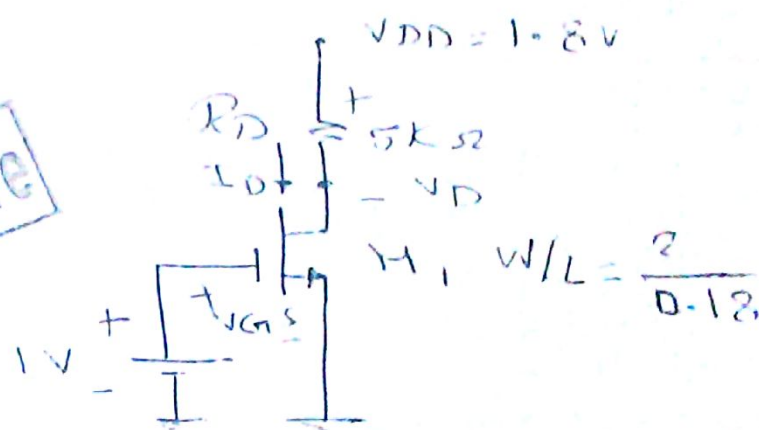 VDD = 1.8V
RD
+
5KΩ
ID
- VD
M1 W/L = 2/0.18
+ VGS
+
1V
-
e